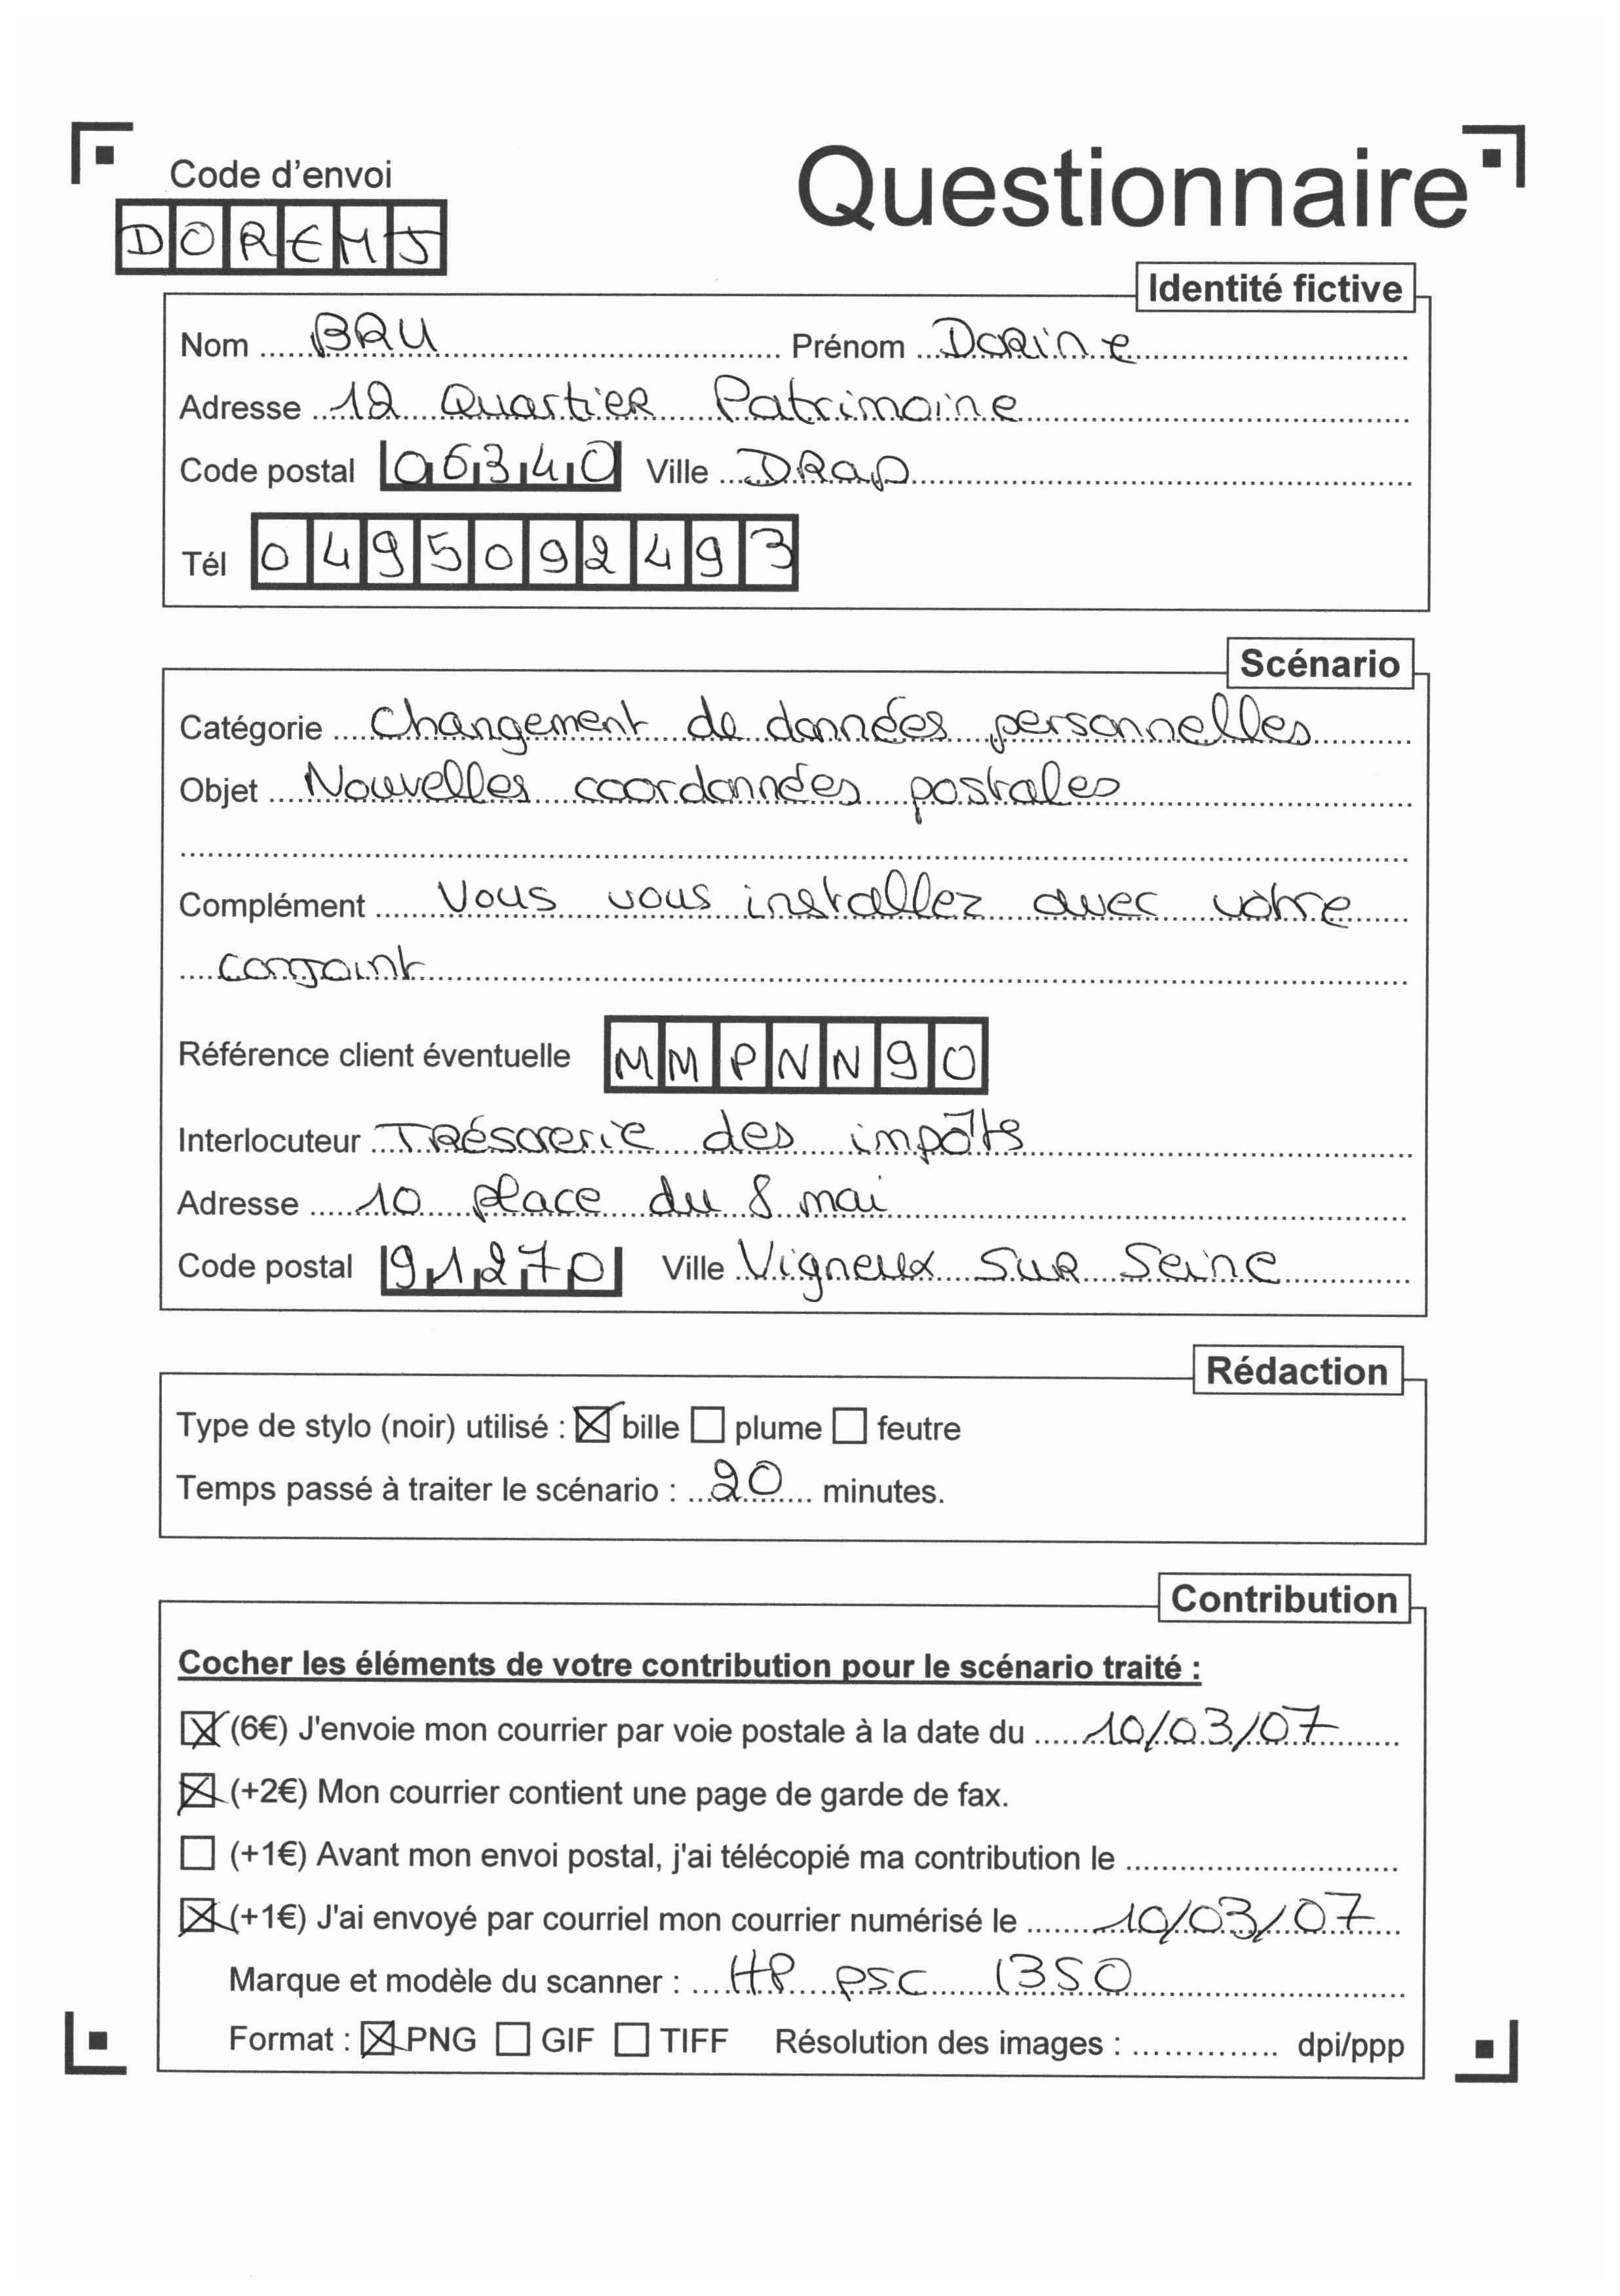 Code d'envoi
Questionnaire
DOREMJ
Identité fictive
Nom BRU Prénom DORINE
Adresse 12 Quartier Patrimoine
Code postal 06340 Ville DRAP
Tél 0495092493
Scénario
Catégorie Changement de données personnelles
Objet Nouvelles coordonnées postales
Complément Vous vous installez avec votre
conjoint
Référence client éventuelle MMPNN90
Interlocuteur Trésorerie des impôts
Adresse 10 place du 8 mai
Code postal 91270 Ville Vigneux Sur Seine
Rédaction
Type de stylo (noir) utilisé : ☒ bille ☐ plume ☐ feutre
Temps passé à traiter le scénario : 20 minutes.
Contribution
Cocher les éléments de votre contribution pour le scénario traité :
☒ (6€) J'envoie mon courrier par voie postale à la date du 10/03/07
☒ (+2€) Mon courrier contient une page de garde de fax.
☐ (+1€) Avant mon envoi postal, j'ai télécopié ma contribution le
☒ (+1€) J'ai envoyé par courriel mon courrier numérisé le 10/03/07
Marque et modèle du scanner : HP psc 1350
Format : ☒ PNG ☐ GIF ☐ TIFF Résolution des images : dpi/ppp